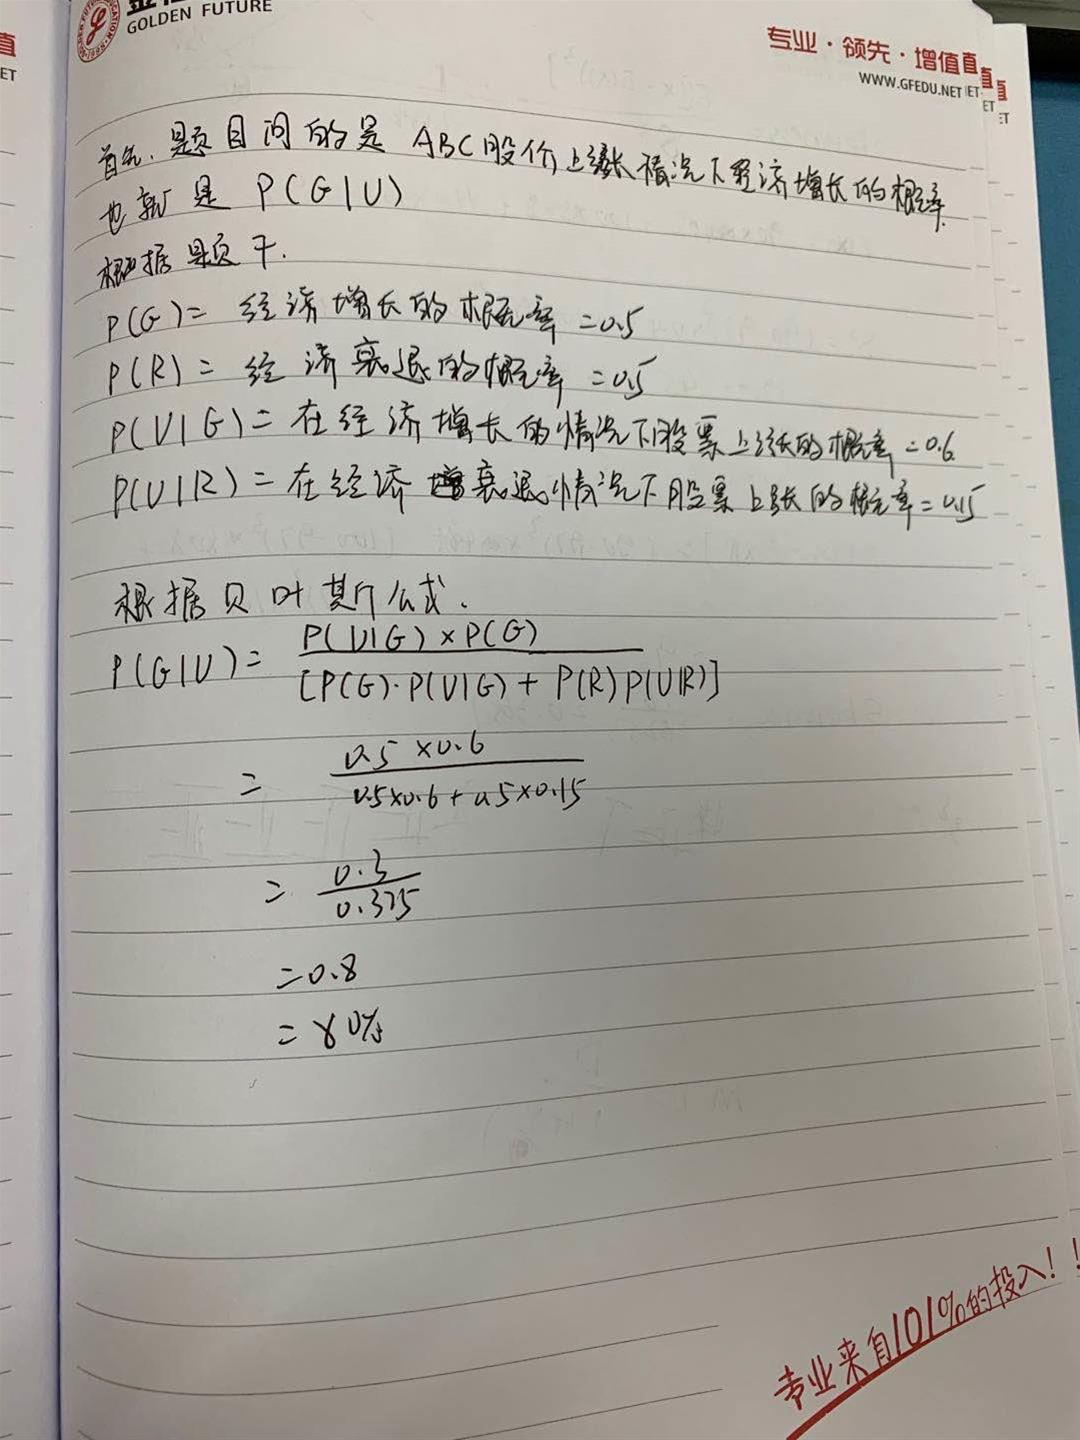 GOLDEN FUTURE
专业·领先·增值
WWW.GFEDU.NET
首先,题目问的是 ABC股价上涨情况下经济增长的概率.
也就是 P(G|U)
根据题干.
P(G)= 经济增长的概率=0.5
P(R)= 经济衰退的概率=0.5
P(U|G)=在经济增长的情况下股票上涨的概率=0.6
P(U|R)=在经济衰退情况下股票上涨的概率=0.15
根据贝叶斯公式.
P(G|U)= P(U|G)×P(G)
[P(G)·P(U|G)+P(R)P(U|R)]
= 0.5×0.6
0.5×0.6+0.5×0.15
= 0.3
0.375
=0.8
=80%
专业来自101%的投入!